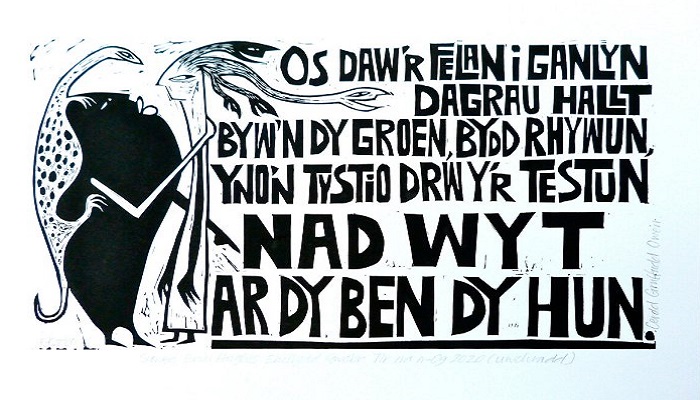 OS DAW'R FELAN I GANLYN
DAGRAU HALLT
BYW'N DY GROEN, BYDD RHYWUN,
YNO'N TYSTIO DRWY'R TESTUN
NAD WYT
AR DY BEN DY HUN.